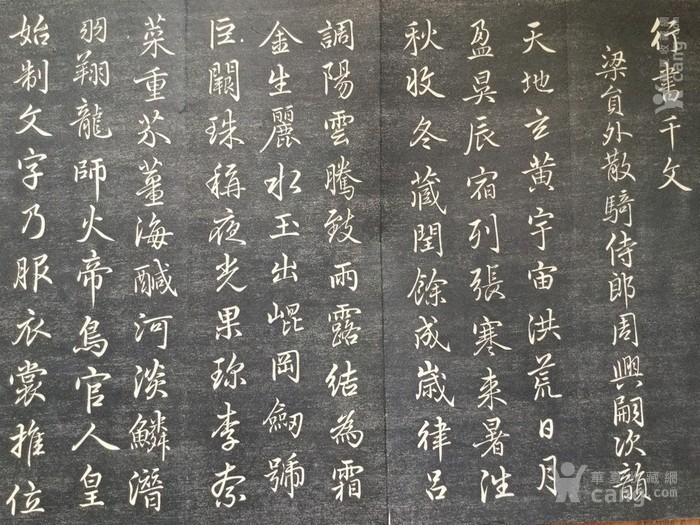 行書千文
梁員外散騎侍郎周興嗣次韻
天地玄黃宇宙洪荒日月
盈昃辰宿列張寒来暑往
秋收冬藏閏餘成歲律呂
調陽雲騰致雨露結為霜
金生麗水玉出崐岡劒號
巨闕珠稱夜光果珎李柰
菜重芥薑海鹹河淡鱗潛
羽翔龍師火帝鳥官人皇
始制文字乃服衣裳推位
華夏收藏網
cang.com